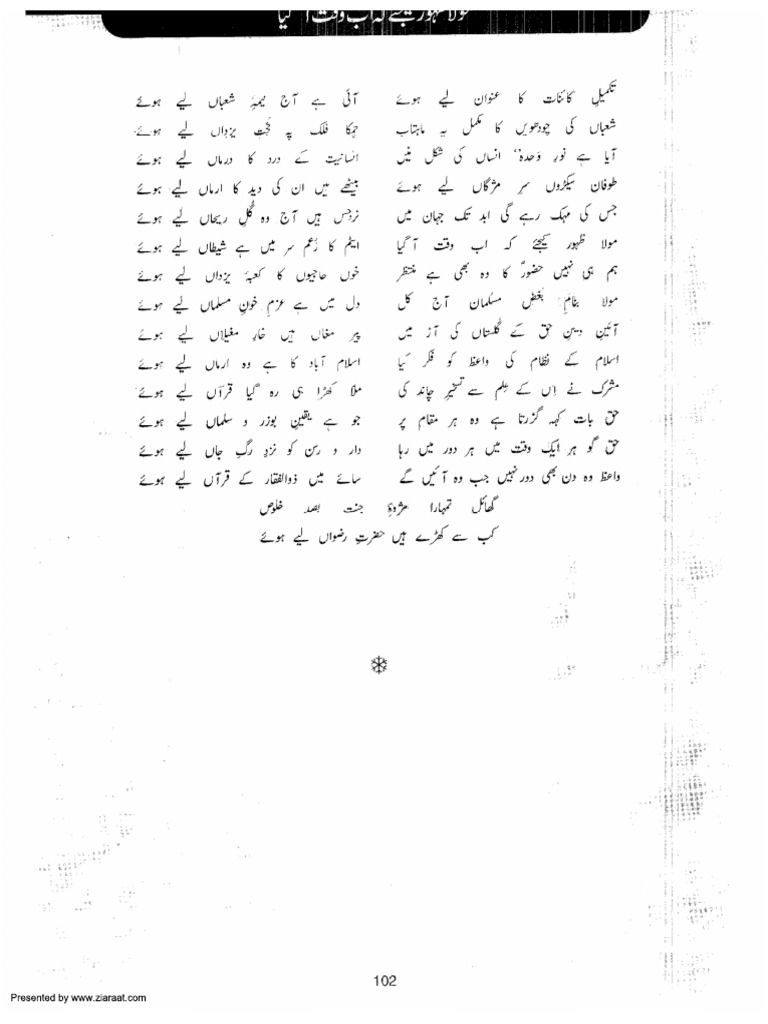 مولا ظہور کیجئے کہ اب وقت آ گیا
تکمیلِ کائنات کا عنوان لیے ہوئے آئی ہے آج نیمۂ شعباں لیے ہوئے
شعباں کی چودھویں کا مکمل یہ ماہتاب چمکا فلک پہ حُجّتِ یزداں لیے ہوئے
آیا ہے نورِ وَحدہٗ انساں کی شکل میں انسانیت کے درد کا درماں لیے ہوئے
طوفان سیکڑوں سرِ مژگاں لیے ہوئے بیٹھے ہیں ان کی دید کا ارماں لیے ہوئے
جس کی مہک رہے گی ابد تک جہان میں نرجس ہیں آج وہ گُلِ ریحاں لیے ہوئے
مولا ظہور کیجئے کہ اب وقت آ گیا ایٹم کا زُعم سر میں ہے شیطاں لیے ہوئے
ہم ہی نہیں حضورؑ کا وہ بھی ہے منتظر خوں حاجیوں کا کعبۂ یزداں لیے ہوئے
مولا بنامِ بُغض مسلمان آج کل دل میں ہے عزمِ خونِ مسلماں لیے ہوئے
آئینِ دینِ حق کے گلستاں کی آڑ میں پیرِ مغاں ہیں خارِ مغیلاں لیے ہوئے
اسلام کے نظام کی واعظ کو فکر کیا اسلام آباد کا ہے وہ ارماں لیے ہوئے
مشرک نے اس کے عِلم سے تسخیر چاند کی ملا کھڑا ہی رہ گیا قرآں لیے ہوئے
حق بات کہہ گزرتا ہے وہ ہر مقام پر جو ہے یقینِ بوزر و سلماں لیے ہوئے
حق گو ہر ایک وقت میں ہر دور میں رہا دار و رسن کو نزدِ رگِ جاں لیے ہوئے
واعظ وہ دن بھی دور نہیں جب وہ آئیں گے سائے میں ذوالفقار کے قرآں لیے ہوئے
گھائل تمہارا مژدۂ جنت بصد خلوص
کب سے کھڑے ہیں حضرتِ رضواں لیے ہوئے
102
Presented by www.ziaraat.com